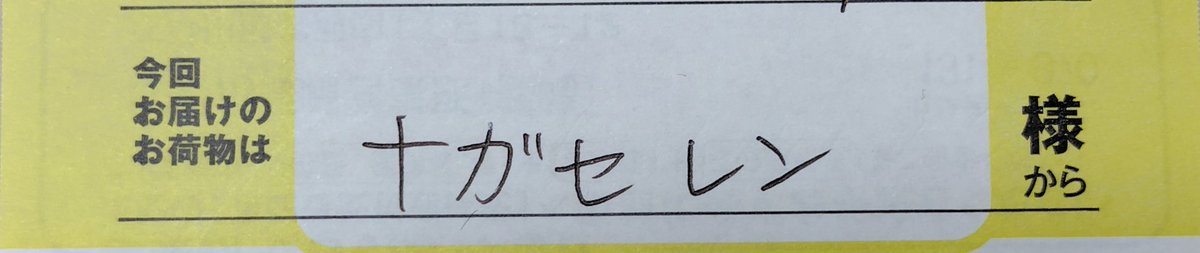 今回
お届けの
お荷物は
ナガセ レン
様
から